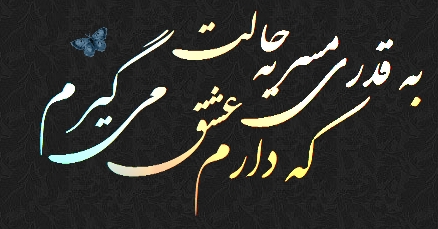 به قدری مسریه حالت
که دارم عشق می گیرم